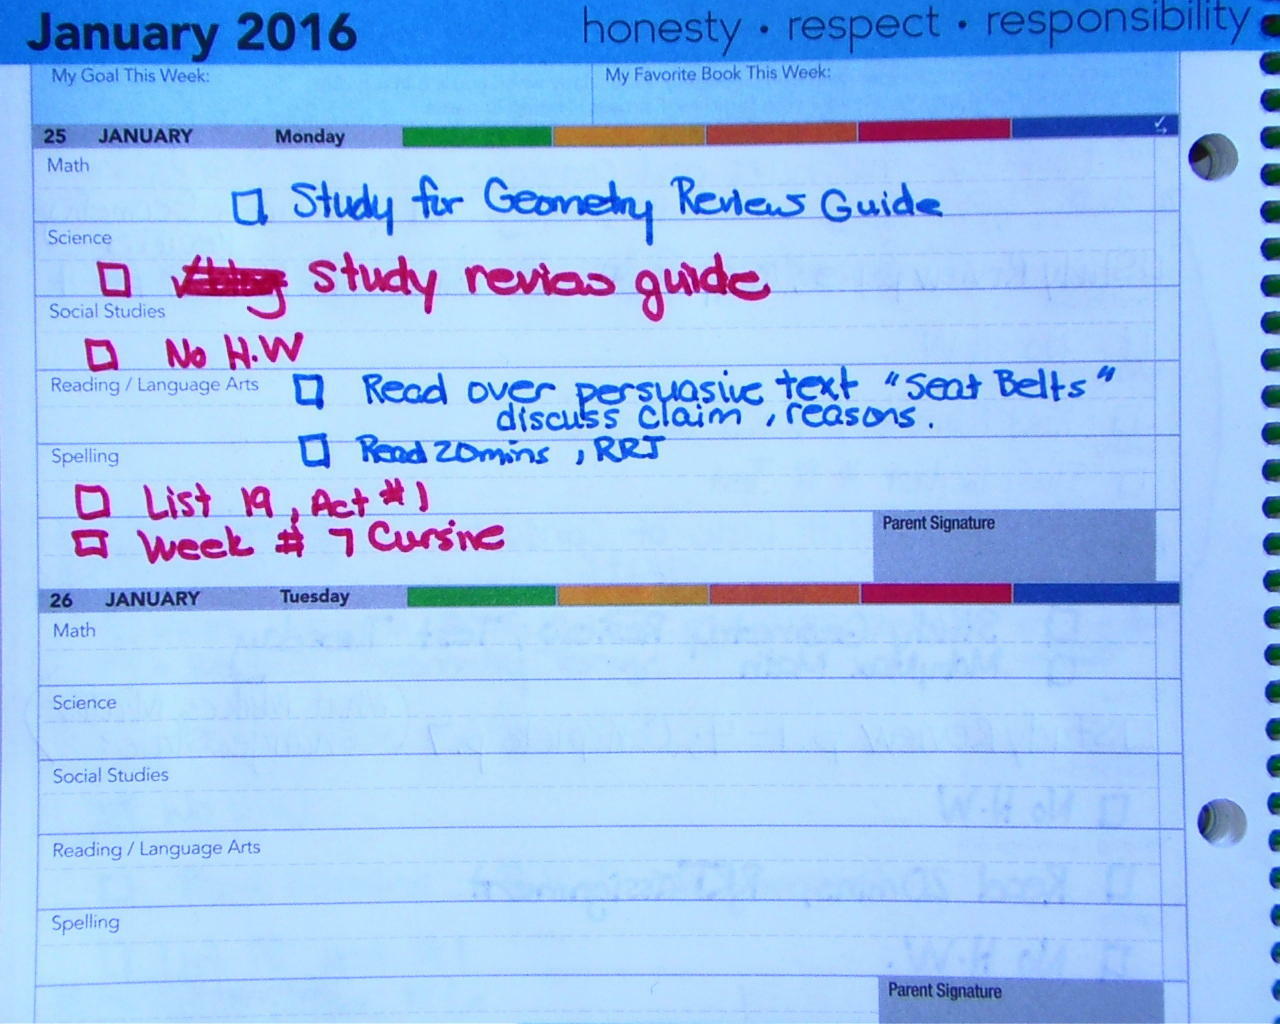 January 2016 honesty • respect • responsibility
My Goal This Week: My Favorite Book This Week:
25 JANUARY Monday
Math
Study for Geometry Reviews Guide
Science
Study review guide
Social Studies
No H.W
Reading / Language Arts
Read over persuasive text "Seat Belts"
discuss claim, reasons.
Read 20mins, RRJ
Spelling
List 19, Act #1
Week # 7 Cursive
Parent Signature
26 JANUARY Tuesday
Math
Science
Social Studies
Reading / Language Arts
Spelling
Parent Signature